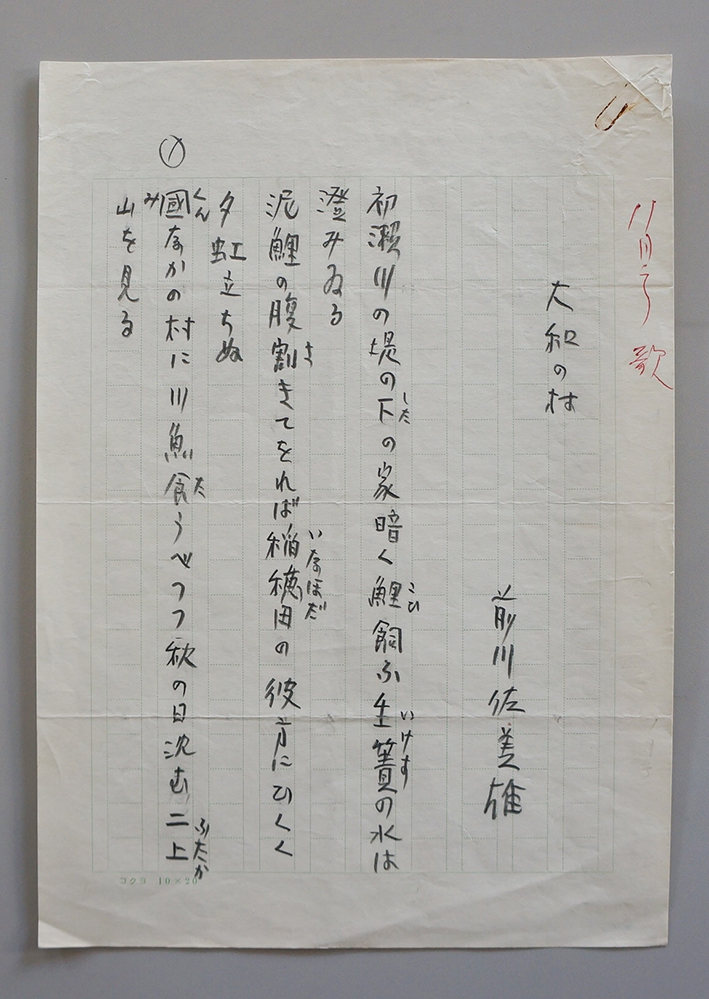 11月号 歌
大和の村
前川佐美雄
初瀬川の堤の下の家暗く鯉飼ふ生簀の水は
した
こひ
いけす
澄みゐる
泥鯉の腹割きてをれば稲穂田の彼方にひくく
さ
いなほだ
夕虹立ちぬ
國なかの村に川魚食うべつつ秋の日沈む二上
くん
た
ふたか
山を見る
み
①
コクヨ 10×20